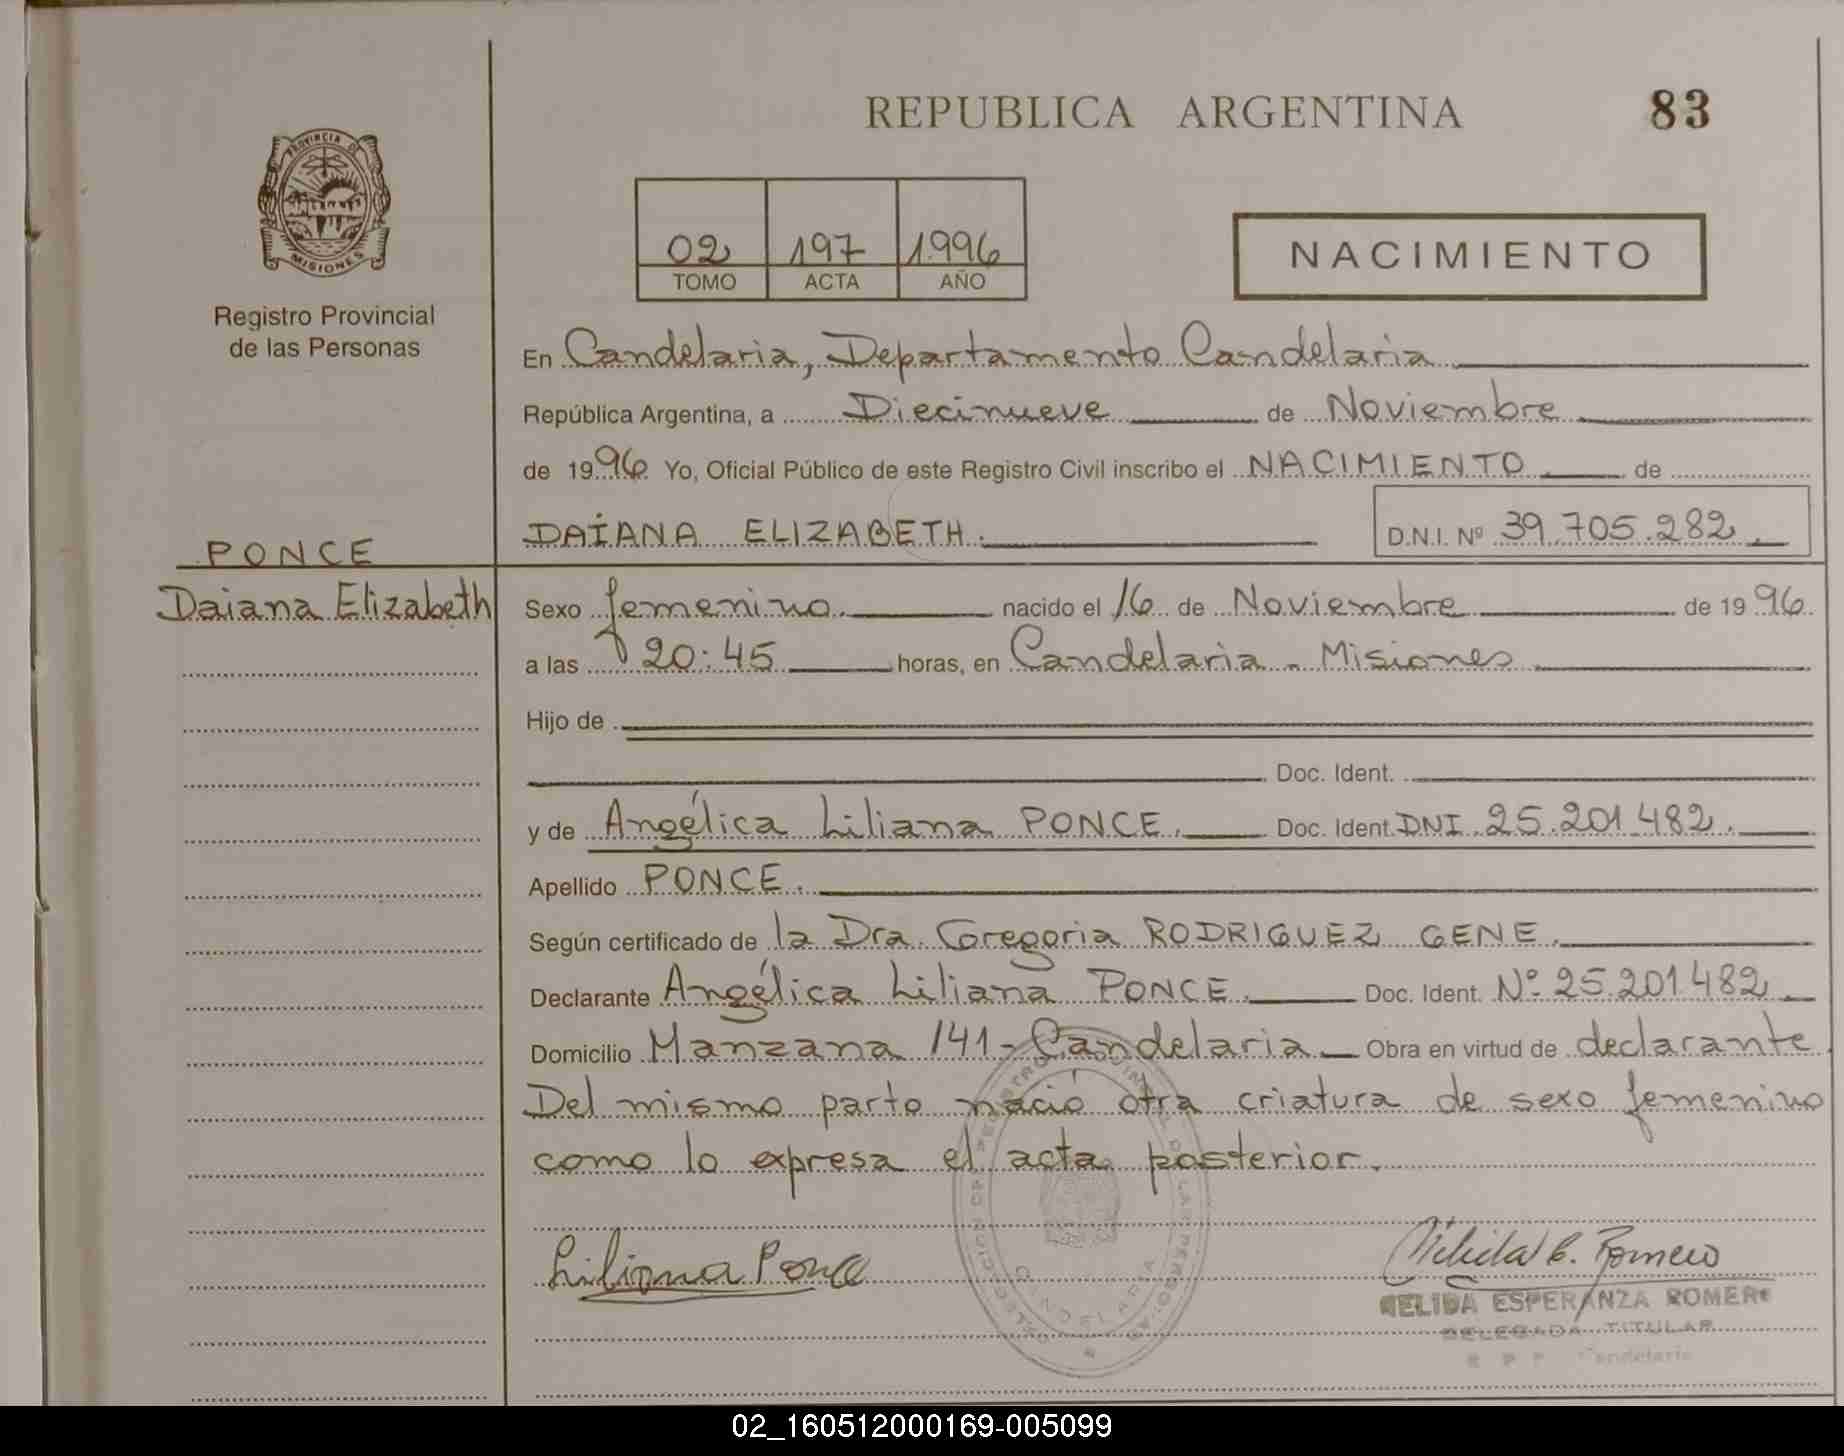 REPUBLICA ARGENTINA
83
PROVINCIA DE
MISIONES
Registro Provincial
de las Personas
02 197 1996
TOMO ACTA AÑO
NACIMIENTO
En Candelaria, Departamento Candelaria
República Argentina, a Diecinueve de Noviembre
de 1996 Yo, Oficial Público de este Registro Civil inscribo el NACIMIENTO de
DAIANA ELIZABETH.
D.N.I. Nº 39.705.282
PONCE
Daiana Elizabeth
Sexo femenino. nacido el 16 de Noviembre de 1996
a las 20:45 horas, en Candelaria - Misiones
Hijo de
Doc. Ident.
y de Angélica Liliana PONCE. Doc. Ident. DNI 25.201.482.
Apellido PONCE.
Según certificado de la Dra. Gregoria RODRIGUEZ GENE.
Declarante Angélica Liliana PONCE. Doc. Ident. Nº 25.201.482
Domicilio Manzana 141 - Candelaria Obra en virtud de declarante
Del mismo parto nació otra criatura de sexo femenino
como lo expresa el acta posterior.
Liliana Ponce
Nélida E. Romero
NELIDA ESPERANZA ROMERO
DELEGADA TITULAR
R P P Candelaria
CANDELARIA
02_160512000169-005099